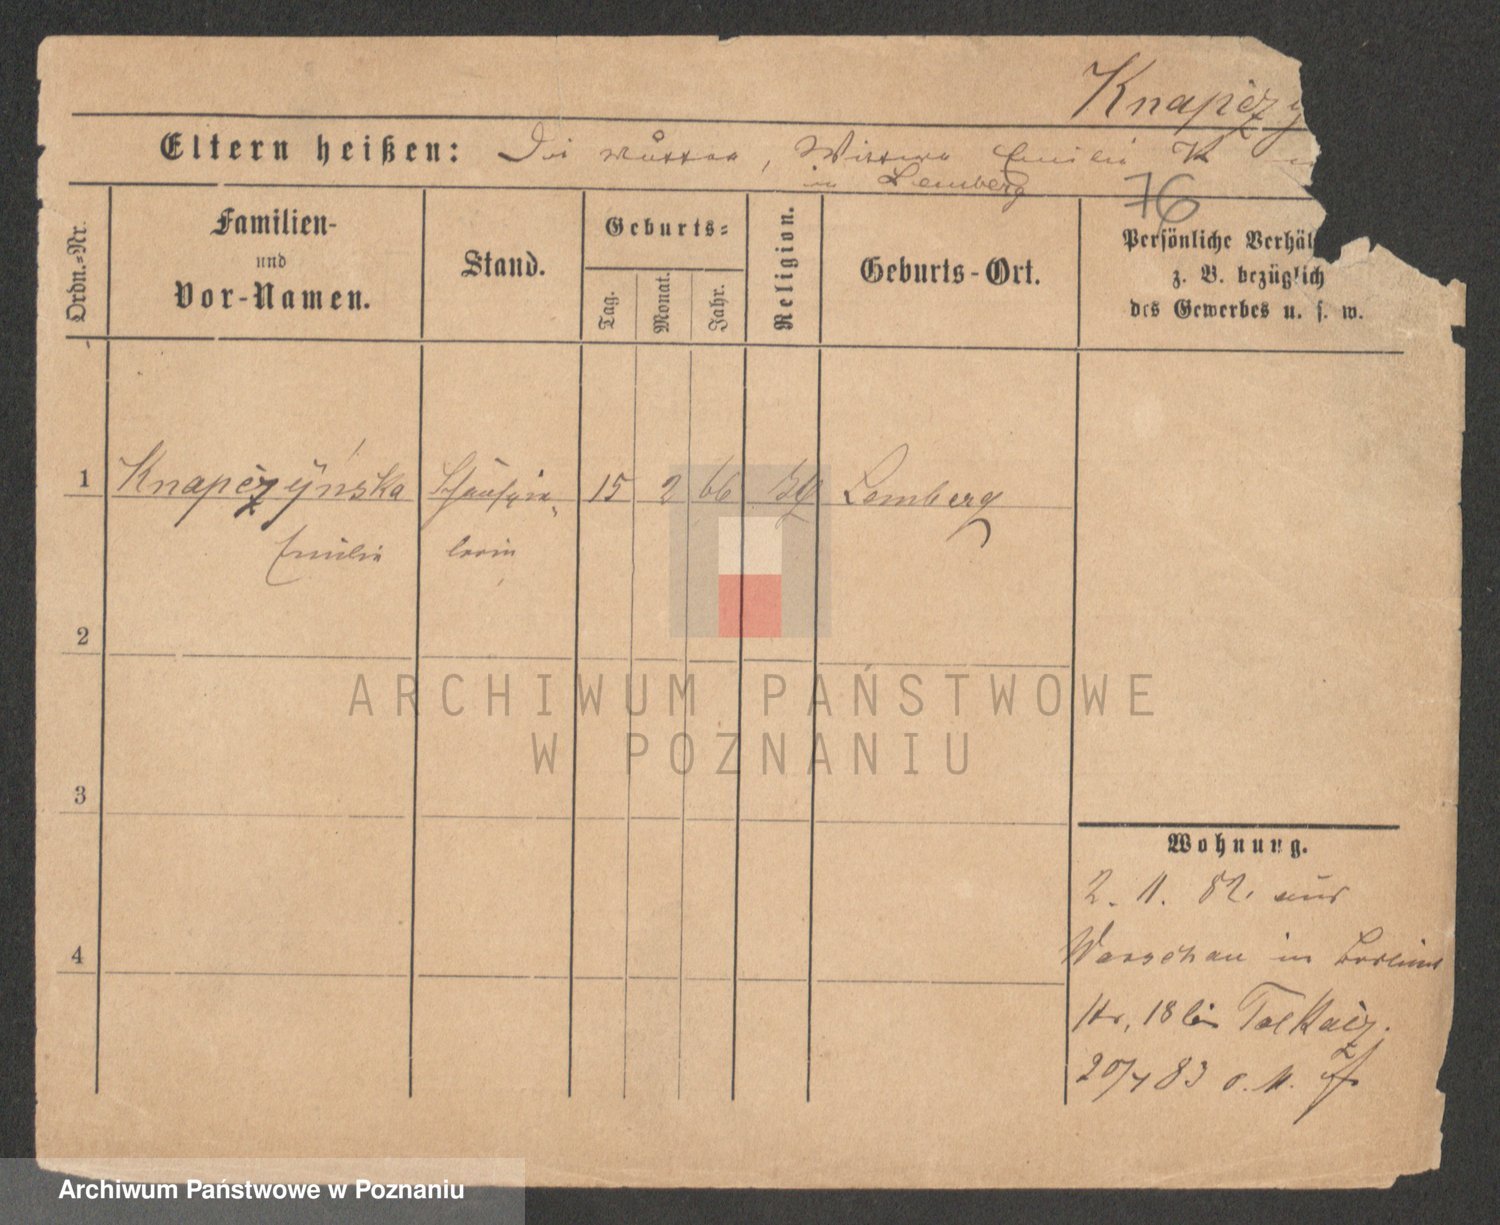 Knapczy
Eltern heißen: Die Mutter, Wittwe Emilie K
in Lemberg
76
Ordn.-Nr.
Familien-
und
Vor-Namen.
Stand.
Geburts-
Tag.
Monat.
Jahr.
Religion.
Geburts-Ort.
Persönliche Verhäl
z. B. bezüglich
des Gewerbes u. s. w.
1 Knapczyńska Schauspie- 15 2 66 Lemberg
Emilie lerin
2
3
4
Wohnung.
2. 11. 82. aus
Warschau in Berliner
Str. 18 bei Tolkacz.
20/4 83 o. M.
ARCHIWUM PAŃSTWOWE
W POZNANIU
Archiwum Państwowe w Poznaniu